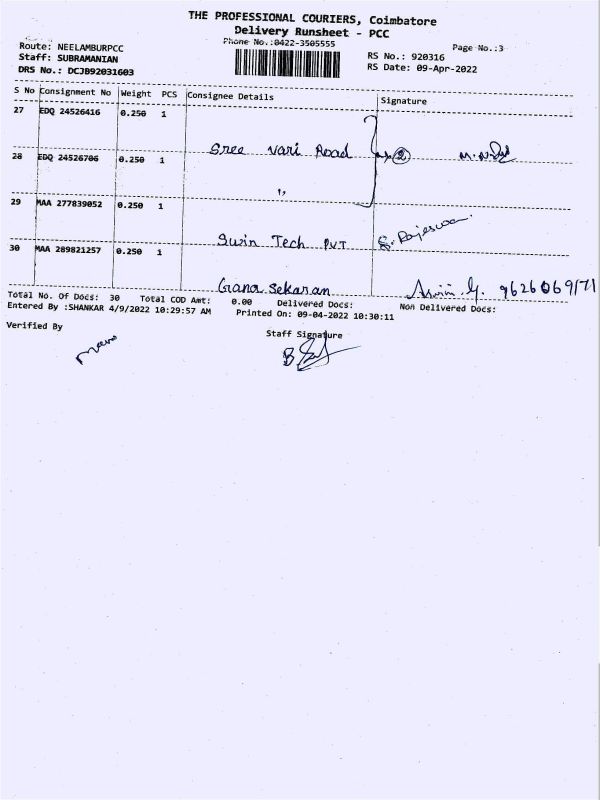 THE PROFESSIONAL COURIERS, Coimbatore
Delivery Runsheet - PCC
Phone No.:0422-3505555
Page No.:3
Route: NEELAMBURPCC
Staff: SUBRAMANIAN
DRS No.: DCJB92031603
RS No.: 920316
RS Date: 09-Apr-2022
S No Consignment No Weight PCS Consignee Details Signature
27 EDQ 24526416 0.250 1
Sree Vari Road
28 EDQ 24526706 0.250 1
"
29 MAA 277839052 0.250 1
Swin Tech PVT S. Rajeswa
30 MAA 289821257 0.250 1
Gana Sekaran 9626069171
Total No. Of Docs: 30 Total COD Amt: 0.00 Delivered Docs: Non Delivered Docs:
Entered By :SHANKAR 4/9/2022 10:29:57 AM Printed On: 09-04-2022 10:30:11
Verified By Staff Signature